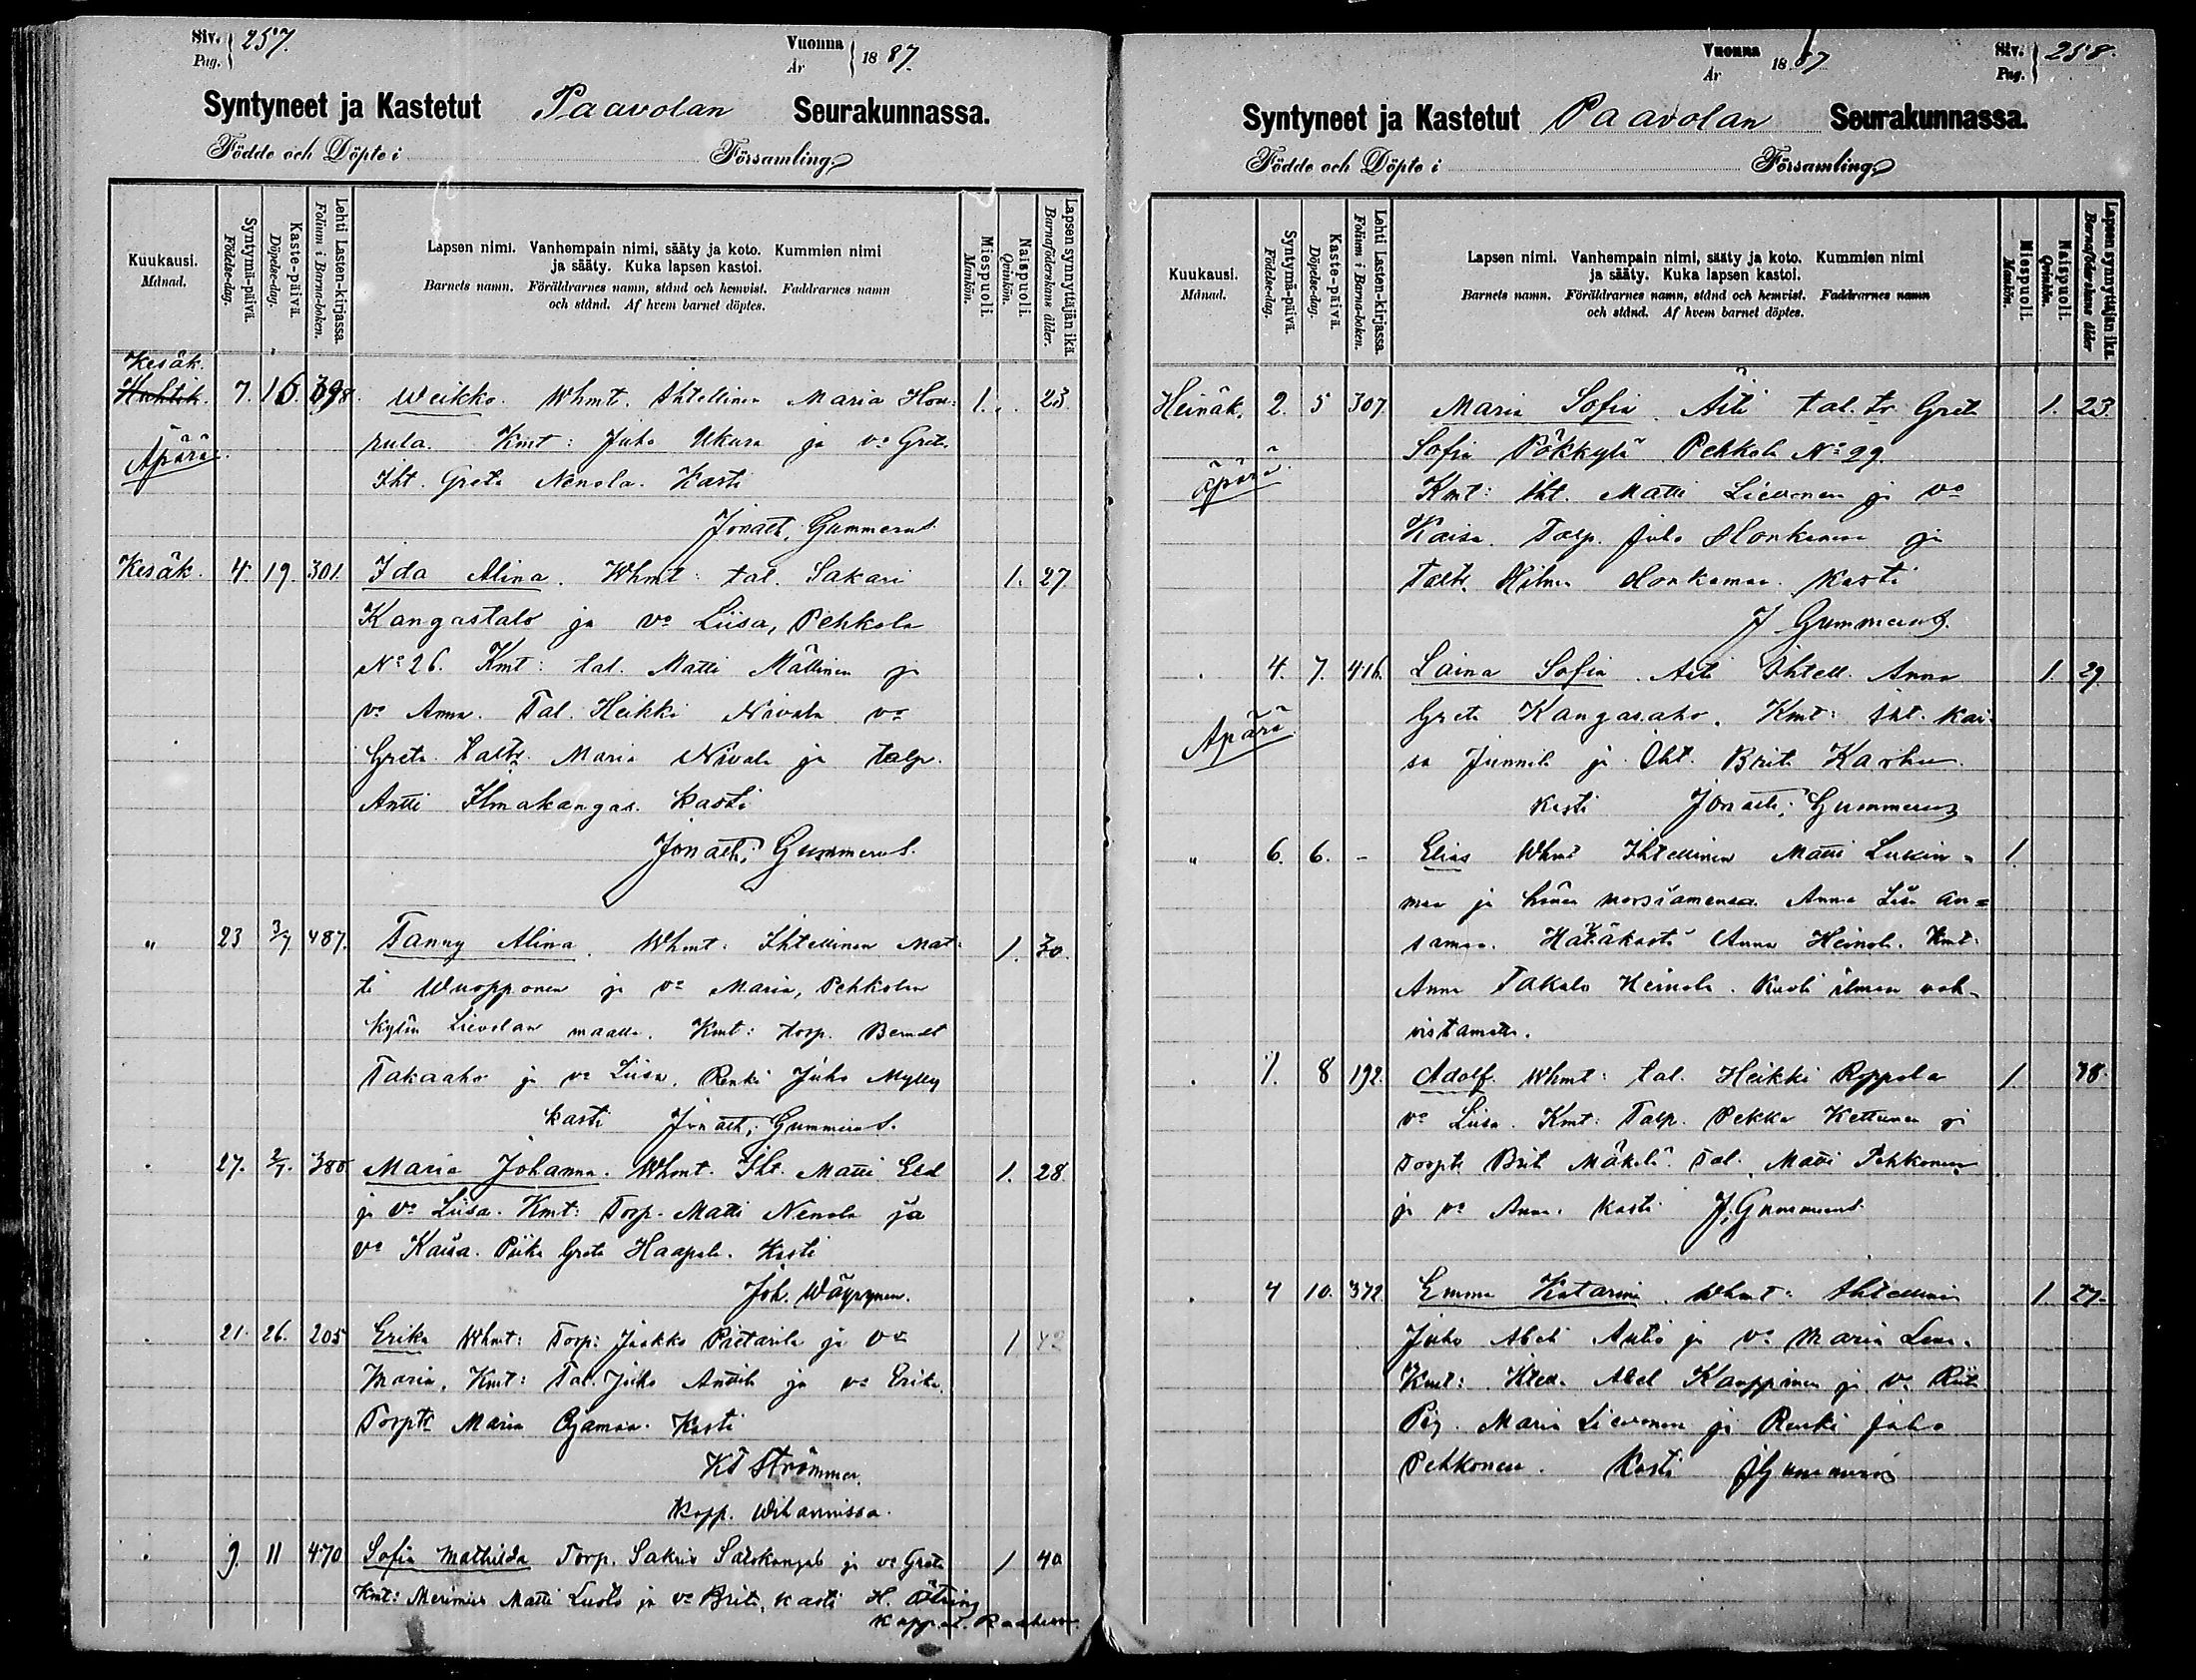 Siv. 257.
Pag.
Vuonna 1887.
År
Syntyneet ja Kastetut Paavolan Seurakunnassa.
Födde och Döpte i Församling.
Kuukausi.
Månad.
Syntymä-päivä.
Födelse-dag.
Kaste-päivä.
Döpelse-dag.
Lehti Lasten-kirjassa.
Folium i Barna-boken.
Lapsen nimi. Vanhempain nimi, sääty ja koto. Kummien nimi
ja sääty. Kuka lapsen kastoi.
Barnets namn. Föräldrarnes namn, stånd och hemvist. Faddrarnes namn
och stånd. Af hvem barnet döptes.
Miespuoli.
Mankön.
Naispuoli.
Qvinkön.
Lapsen synnyttäjän ikä.
Barnaföderskans ålder.
Kesäk.
Huhtik. 7. 16. 398. Weikko. Whmt. Ihtellinen Maria Hou- 1. 23.
Äpärä. pula. Kmt: Juho Ukura ja vo Greta.
Iht. Greta Nenola. Kasti
Jonath. Gummerus.
Kesäk. 4. 19. 301. Ida Alina. Whmt: tal. Sakari 1. 27.
Kangastalo ja vo Liisa, Pehkola
No 26. Kmt: tal. Matti Mällinen ja
vo Anna. Tal. Heikki Nivala vo
Greta. taltr. Maria Nivala ja talp.
Antti Ilmakangas. Kasti
Jonath. Gummerus.
" 23 3/7 487. Fanny Alina. Whmt: Ihtellinen Mat- 1. 30.
ti Wuopponen ja vo Maria, Pehkolan
kylän Lievolan maalla. Kmt: torp. Berndt
Takaaho ja vo Liisa. Renki Juho Mylly
kasti Jonath. Gummerus.
27. 2/7. 380 Maria Johanna. Whmt. Iht. Matti Eld 1. 28.
ja vo Liisa. Kmt: Torp. Matti Nenola ja
vo Kaisa. Piika Greta Haapala. Kasti
Joh. Wäyrynen.
21. 26. 205 Erika Whmt: Torp: Jaakko Pietarila ja vo 1 42
Maria. Kmt: Tal. Juho Anttila ja vo Erika.
Torptr Maria Ojamaa. Kasti
Strömmer.
Kapp. Wihannissa.
9. 11 470 Sofia Mathilda Torp. Sakris Salokangas ja vo Greta 1 40
Kmt: Merimies Matti Luoto ja vo Brita, kasti H.
Kappal.
Vuonna 1887
År
Siv. 258.
Pag.
Syntyneet ja Kastetut Paavolan Seurakunnassa.
Födde och Döpte i Församling.
Kuukausi.
Månad.
Syntymä-päivä.
Födelse-dag.
Kaste-päivä.
Döpelse-dag.
Lehti Lasten-kirjassa.
Folium i Barna-boken.
Lapsen nimi. Vanhempain nimi, sääty ja koto. Kummien nimi
ja sääty. Kuka lapsen kastoi.
Barnets namn. Föräldrarnes namn, stånd och hemvist. Faddrarnes namn
och stånd. Af hvem barnet döptes.
Miespuoli.
Mankön.
Naispuoli.
Qvinkön.
Lapsen synnyttäjän ikä.
Barnaföderskans ålder
Heinäk. 2. 5 307 Maria Sofia. Äiti tal. tr Greta 1. 23.
Sofia Pökkylä Pehkola No 29.
äpärä. Kmt: Iht. Matti Lievonen ja vo
Kaisa. Talp. Juho Honkamaa ja
Taltr. Hilma Honkamaa. Kasti
J Gummerus.
4. 7. 416. Laina Sofia. Äiti Ihtell. Anna 1. 29.
Greta Kangasaho. Kmt: Iht. Kai-
Äpärä. sa Junnila ja Iht. Brita Karhu.
kasti Jonath. Gummerus
" 6. 6. - Elias Whmt Ihtellinen Matti Lukin- 1.
maa ja hänen morsiamensa Anna Liisa An-
samaa. Hätäkasti Anna Heinola. Kmt:
Anna Takalo Heinola. Kuoli ilman vah-
vistamatta.
1. 8 192. Adolf. Whmt: tal. Heikki Roppola 1. 38.
vo Liisa. Kmt: Talp. Pekka Kettunen ja
torptr Brit Mäkelä. Tal. Matti Pehkonen
ja vo Anna. Kasti J. Gummerus.
4 10. 372 Emma Katarina. Whmt: Ihtellinen 1. 27.
Juho Abeli Autio ja vo Maria Lena.
Kmt: Itell. Abel Kauppinen ja vo Riita
Maria Lievonen ja Renki Juho
Pehkonen. Kasti JGummerus